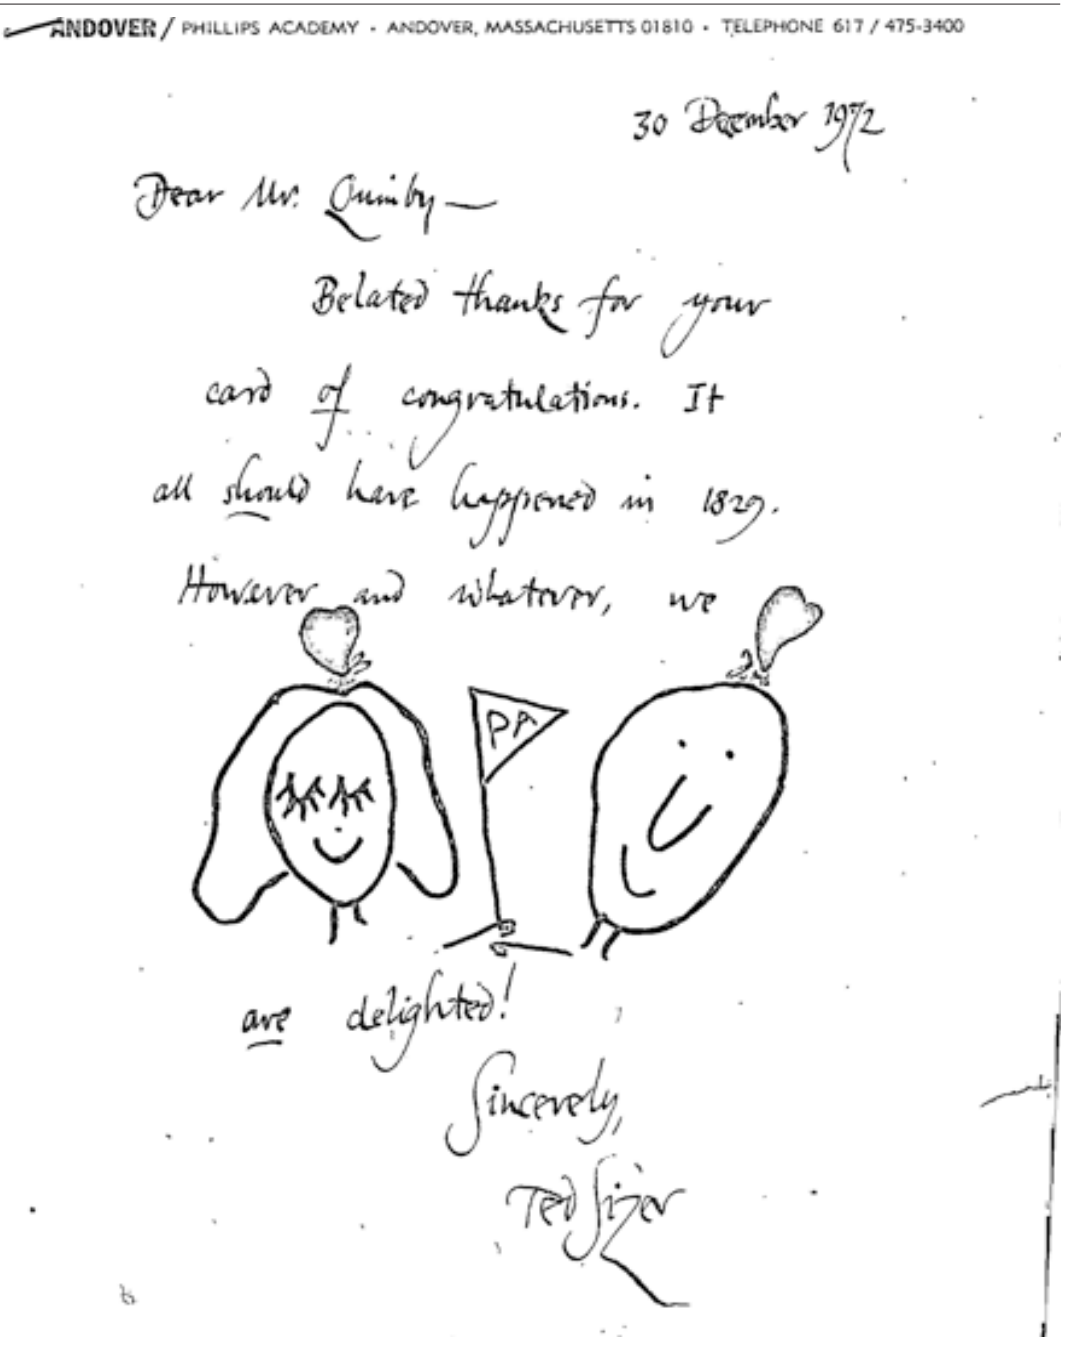 ANDOVER / PHILLIPS ACADEMY • ANDOVER, MASSACHUSETTS 01810 • TELEPHONE 617 / 475-3400
30 December 1972
Dear Mr. Quimby —
Belated thanks for your
card of congratulations. It
all should have happened in 1829.
However and whatever, we
PA
are delighted!
Sincerely,
Ted Sizer